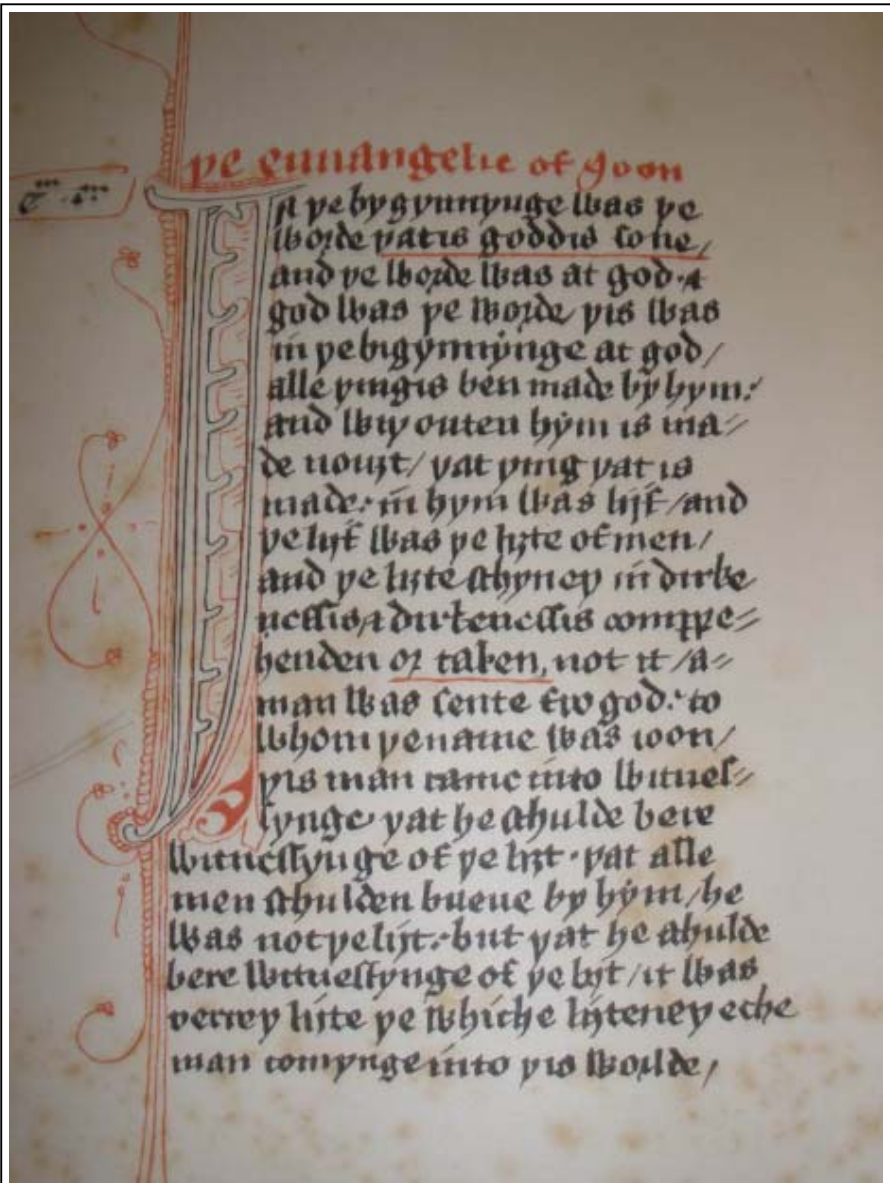 þe euuangelie of Joon
In þe bygynnynge was þe
worde þat is goddis sone /
and þe worde was at god · ⁊
god was þe worde / þis was
in þe bigynnynge at god /
alle þingis ben made by hym :
and wiþ outen hym is ma⸗
de nouȝt / þat þing þat is
made · in hym was lijf / and
þe lijf was þe liȝte of men /
and þe liȝte schyneþ in dirke
nessis / ⁊ dirkenessis compꝛe⸗
henden or taken, not it / a⸗
man was sente fro god : to
whom þe name was ioon /
þis man came in to witnes⸗
synge · þat he schulde bere
witnessynge of þe liȝt · þat alle
men schulden bileue by hym / he
was not þe liȝt : but þat he schulde
bere witnessynge of þe liȝt / it was
verrey liȝte þe whiche liȝteneþ eche
man comynge in to þis worlde /